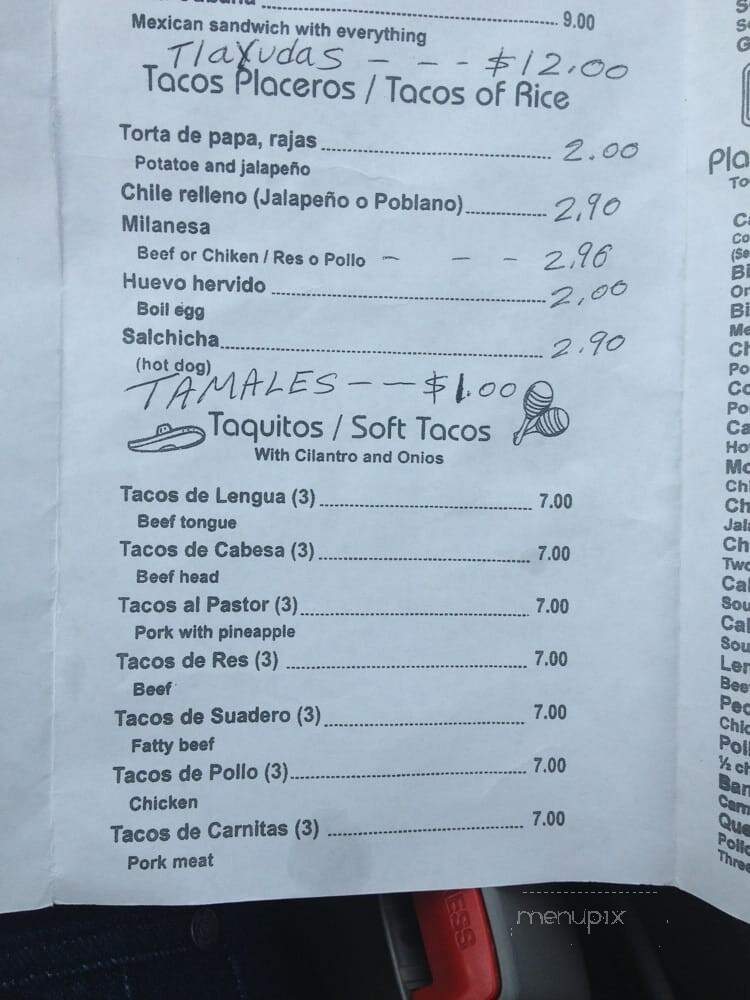 9.00
Mexican sandwich with everything
Tlayudas - - - $12.00
Tacos Placeros / Tacos of Rice
Torta de papa, rajas 2.00
Potatoe and jalapeño
Chile relleno (Jalapeño o Poblano) 2,90
Milanesa
Beef or Chiken / Res o Pollo - - - 2,96
Huevo hervido 2,00
Boil egg
Salchicha 2.90
(hot dog)
TAMALES - - $1.00
Taquitos / Soft Tacos
With Cilantro and Onios
Tacos de Lengua (3) 7.00
Beef tongue
Tacos de Cabesa (3) 7.00
Beef head
Tacos al Pastor (3) 7.00
Pork with pineapple
Tacos de Res (3) 7.00
Beef
Tacos de Suadero (3) 7.00
Fatty beef
Tacos de Pollo (3) 7.00
Chicken
Tacos de Carnitas (3) 7.00
Pork meat
menupix